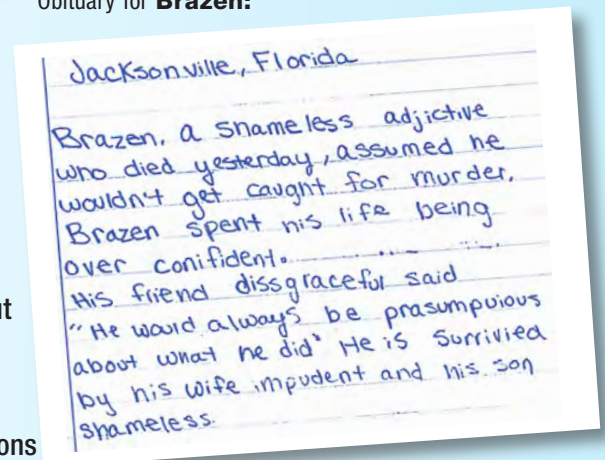 Obituary for Brazen:
Jacksonville, Florida
Brazen, a shameless adjictive
who died yesterday, assumed he
wouldn't get caught for murder.
Brazen spent his life being
over conifident.
His friend dissgraceful said
"He would always be prasumpuious
about what he did" He is Surrivied
by his wife impudent and his son
shameless.
ut
ons